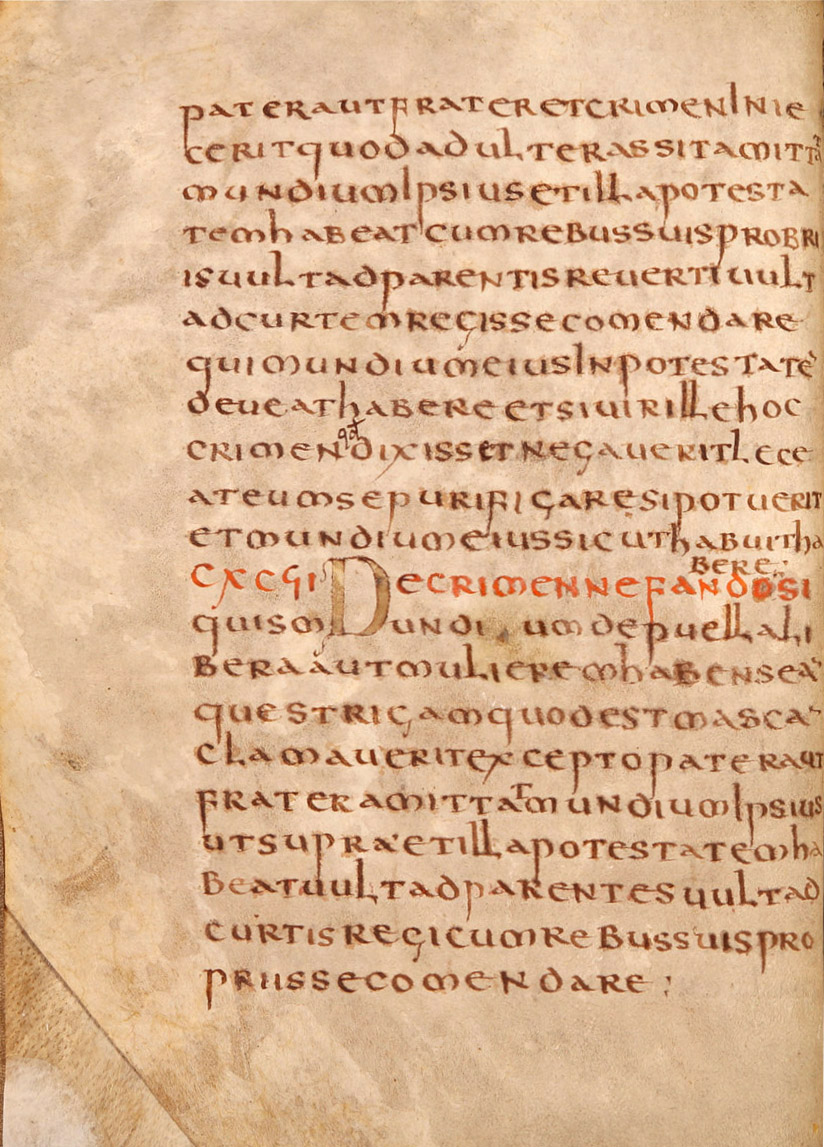 pater aut frater et crimen inie
cerit quod adulterassit amitta
mundium ipsius et illa potesta
tem habeat cum rebus suis probri
is uult ad parentis reuerti uult
ad curtem regis se comendare
qui mundium eius in potestate
deueat habere et si uir ille hoc
crimen qđ dixisset negauerit lece
at eum se purificare si potuerit
et mundium eius sicut habuit ha
bere;
CXCVII De crimen nefando si
quis mundium de puella li
bera aut mulierem habens ea
que strigam quod est masca
clamauerit excepto pater aut
frater amittat mundium ipsius
ut supra et illa potestatem ha
beat uult ad parentes uult ad
curtis regi cum rebus suis pro
priis se comendare;